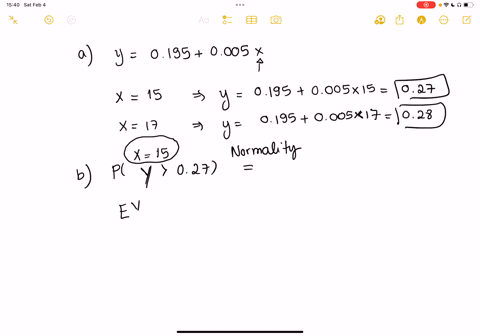 15:40 Sat Feb 4
a) y = 0.195 + 0.005 x
↑
x = 15 ⇒ y = 0.195 + 0.005 × 15 = 0.27
x = 17 ⇒ y = 0.195 + 0.005 × 17 = 0.28
x = 15 Normality
b) P( Y > 0.27) =
EV